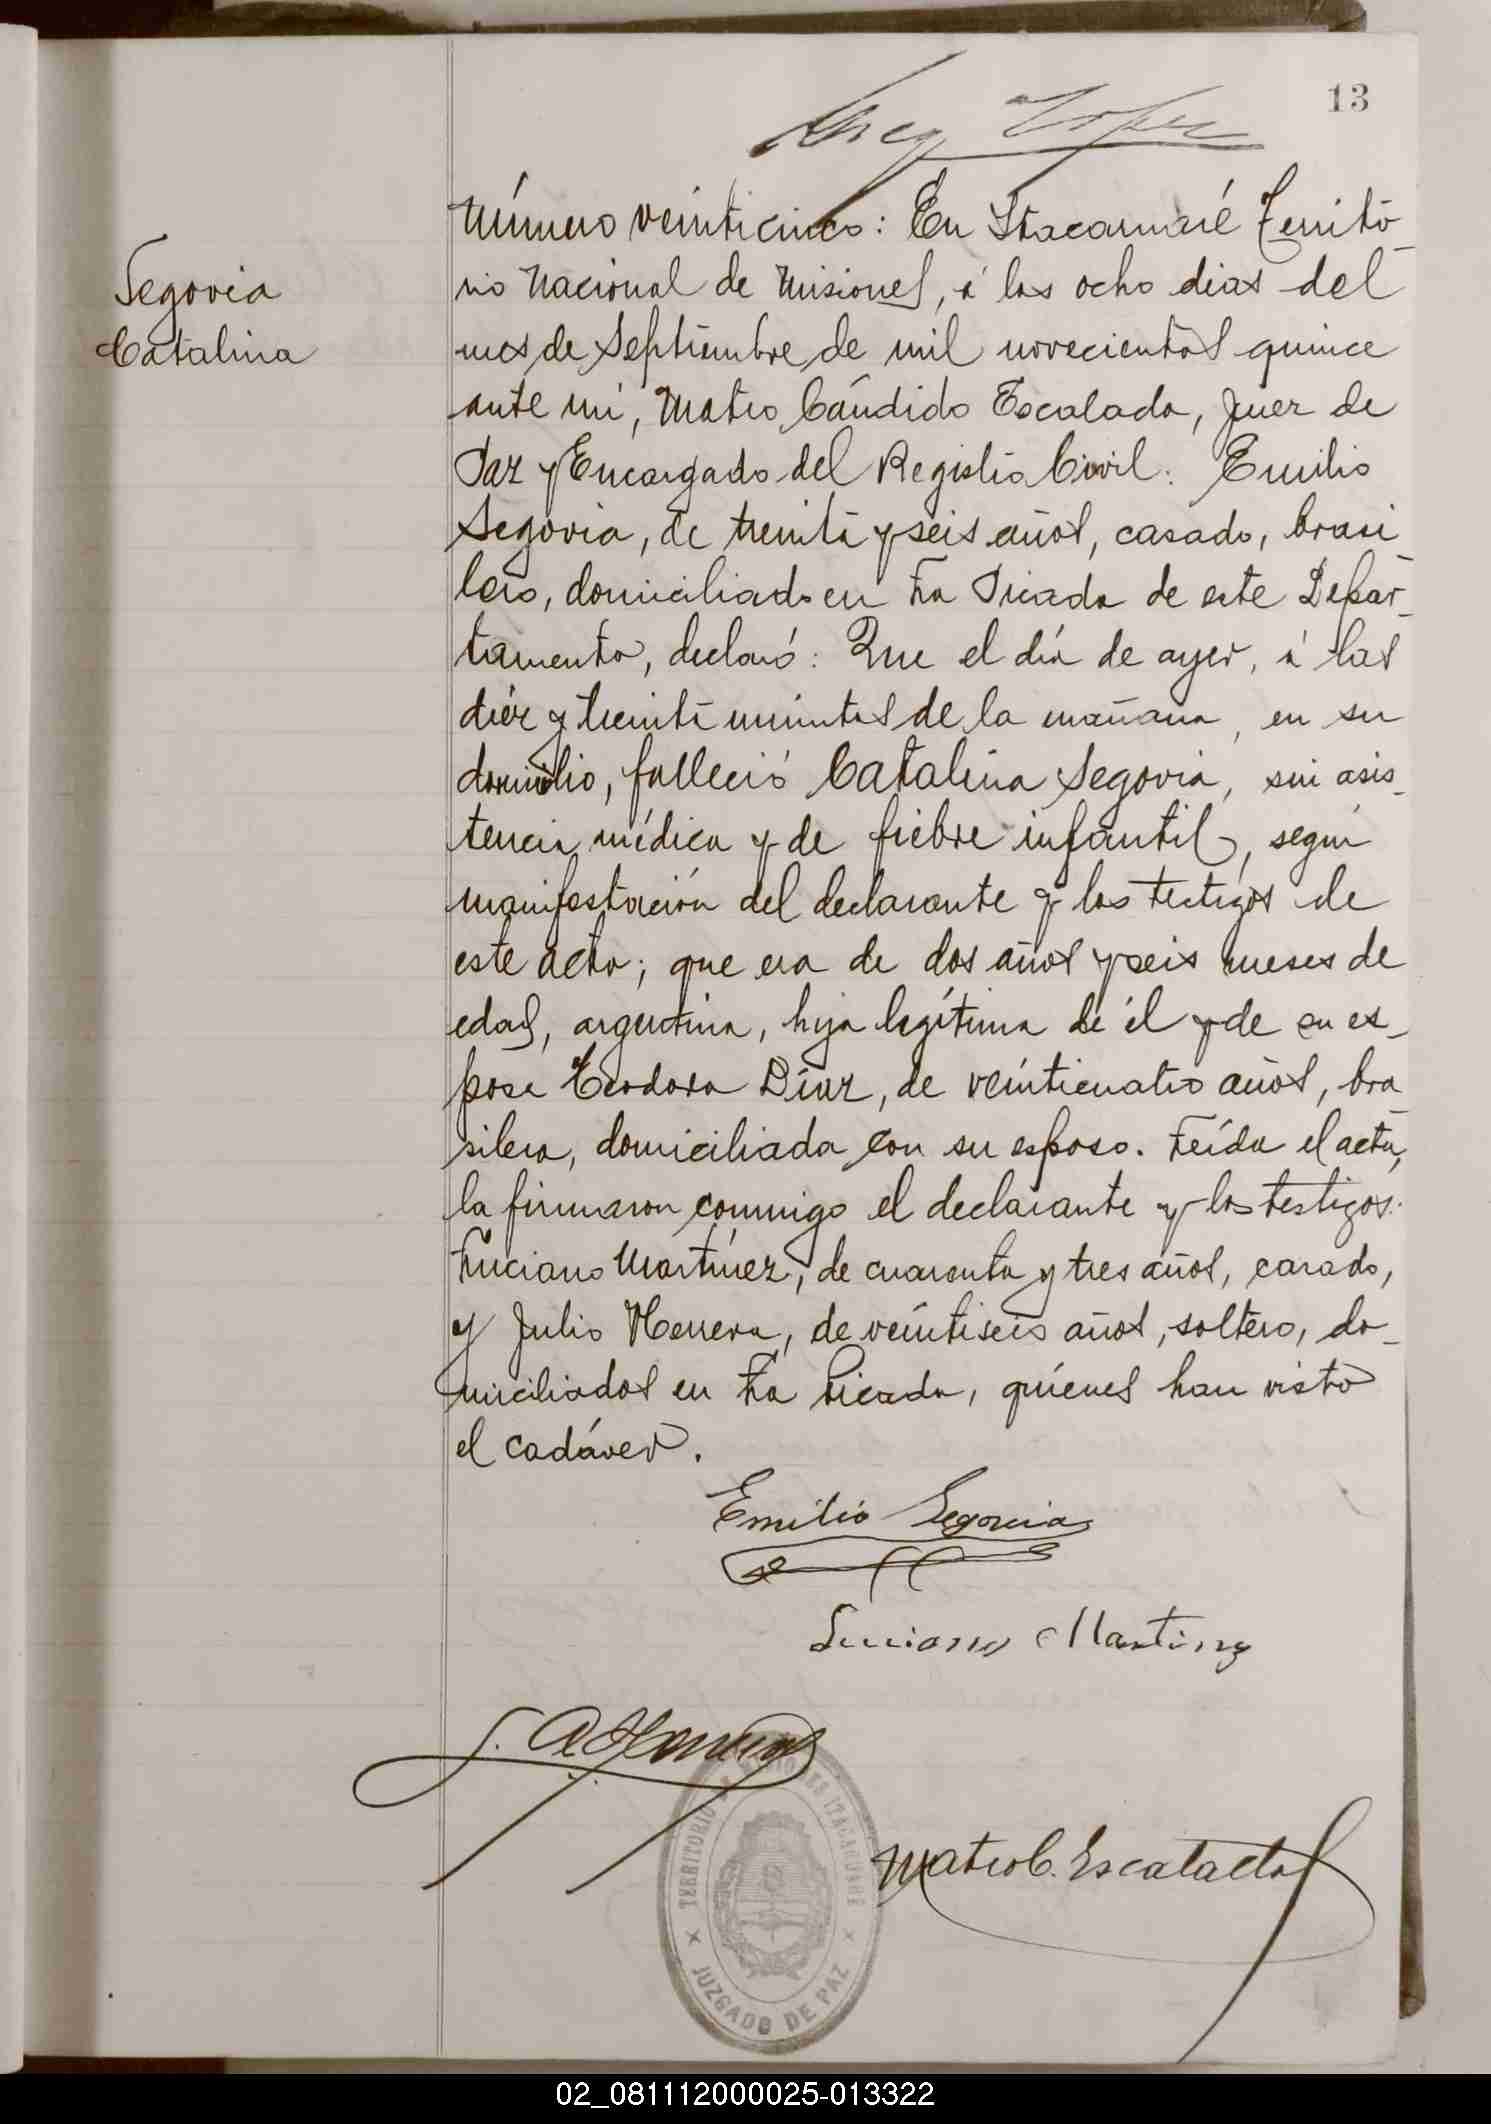 13
Segovia
Catalina
Número veinticinco: En Itacaruaré Territo-
rio Nacional de Misiones, á los ocho dias del
mes de Septiembre de mil novecientos quince
ante mi, Mateo Cándido Escalada, Juez de
Paz y Encargado del Registro Civil: Emilio
Segovia, de treinta y seis años, casado, brasi-
lero, domiciliado en La Picada de este Depar-
tamento, declaró: Que el día de ayer, á las
diéz y treinta minutos de la mañana, en su
domicilio, falleció Catalina Segovia, sin asis-
tencia médica y de fiebre infantil, según
manifestación del declarante y los testigos de
este acto; que era de dos años y seis meses de
edad, argentina, hija legítima de él y de su es-
posa Teodora Díaz, de veinticuatro años, bra-
silera, domiciliada con su esposo. Leída el acta,
la firmaron conmigo el declarante y los testigos:
Luciano Martínez, de cuarenta y tres años, casado,
y Julio Herrera, de veintiseis años, soltero, do-
miciliados en La Picada, quiénes han visto
el cadáver.
Emilio Segovia
Luciano Martinez
J. A. Herrera
Mateo C. Escalada
TERRITORIO MISIONES ITACARUARÉ
JUZGADO DE PAZ
02_081112000025-013322